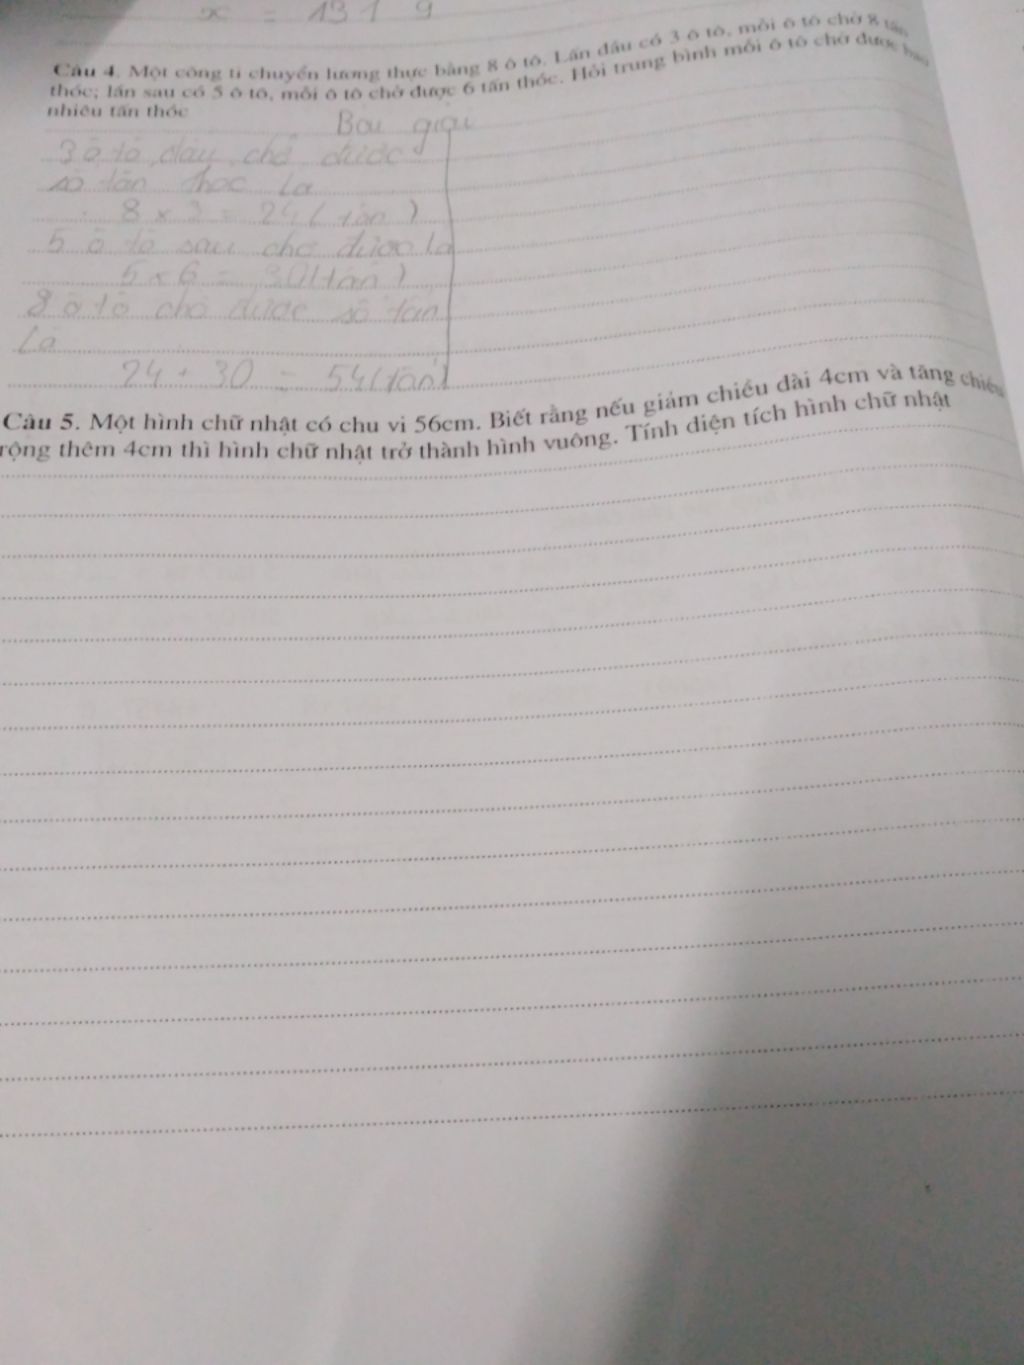 x = 131 9
Câu 4. Một công ti chuyển lương thực bằng 8 ô tô. Lần đầu có 3 ô tô, mỗi ô tô chở 8 tấn
thóc; lần sau có 5 ô tô, mỗi ô tô chở được 6 tấn thóc. Hỏi trung bình mỗi ô tô chở được bao
nhiêu tấn thóc
Bai giai
3 ô tô đầu chở được
số tấn thóc là
8 x 3 = 24 ( tấn )
5 ô tô sau chở được là
5 x 6 = 30 (tấn)
8 ô tô chở được số tấn
là
24 + 30 = 54 (tấn)
Câu 5. Một hình chữ nhật có chu vi 56cm. Biết rằng nếu giảm chiều dài 4cm và tăng chiều
rộng thêm 4cm thì hình chữ nhật trở thành hình vuông. Tính diện tích hình chữ nhật